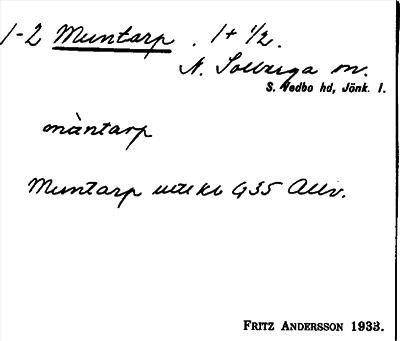 1-2 Muntarp . 1+ 1/2.
N. Solberga sn.
S. Vedbo hd, Jönk. l.
mùntarp
Muntarp G35
FRITZ ANDERSSON 1933.